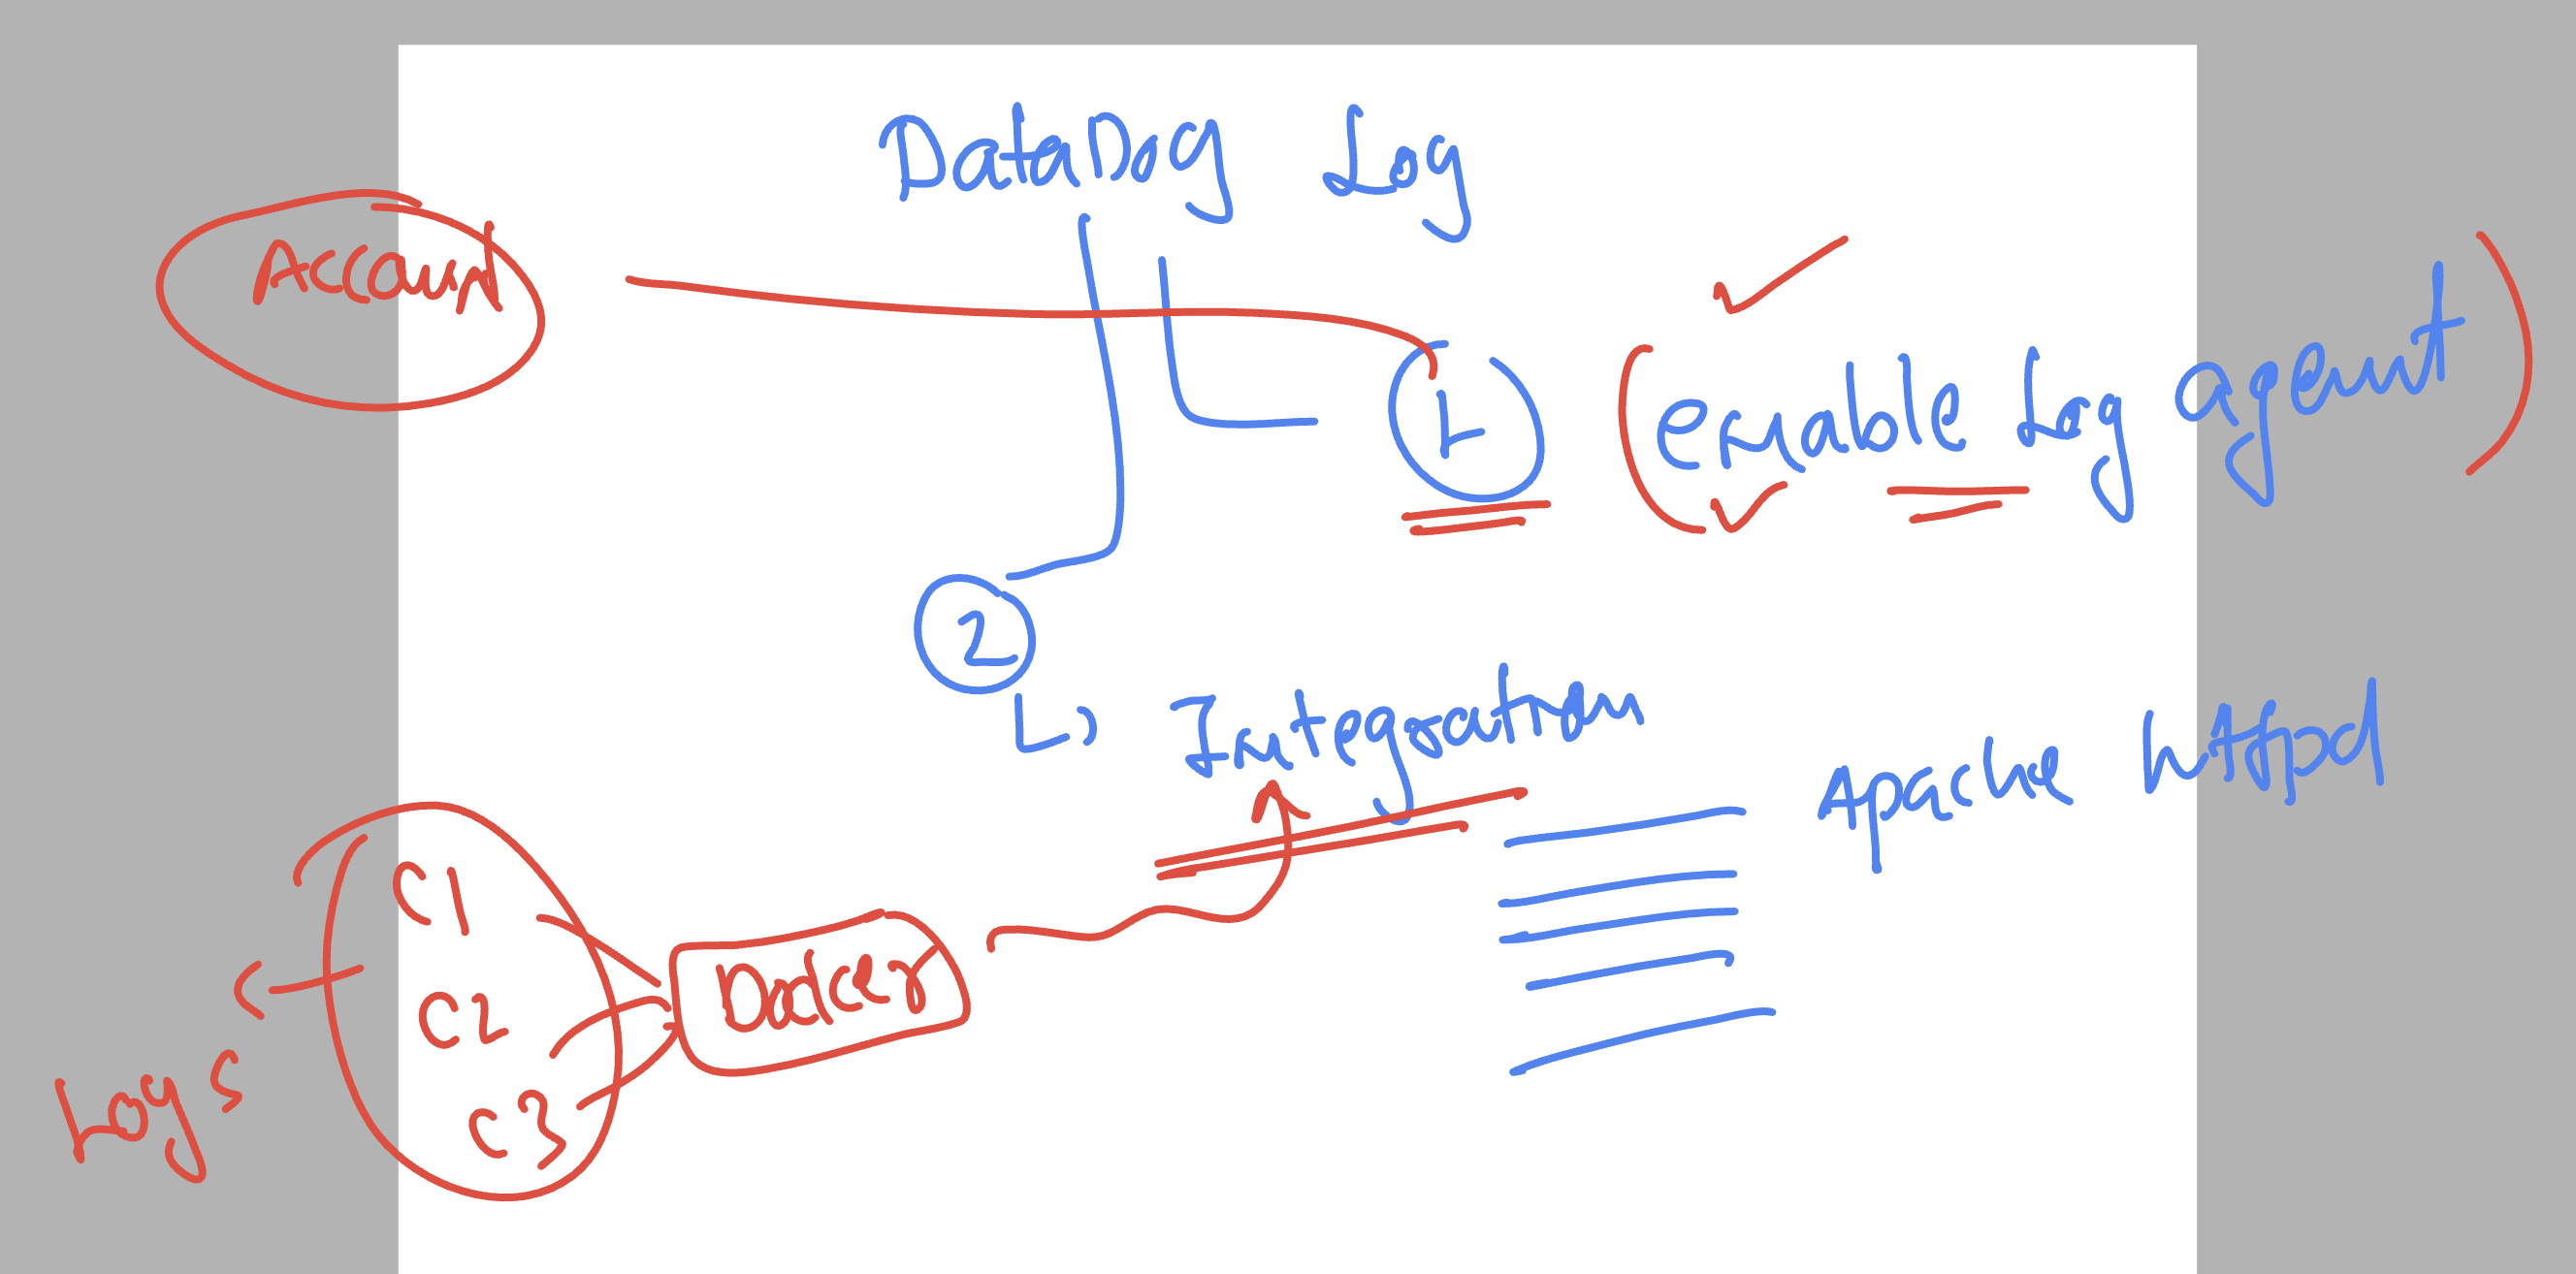 DataDog Log
Account
1 (enable log agent)
2
Integration
Apache httpd
C1
C2
C3
Docker
Logs